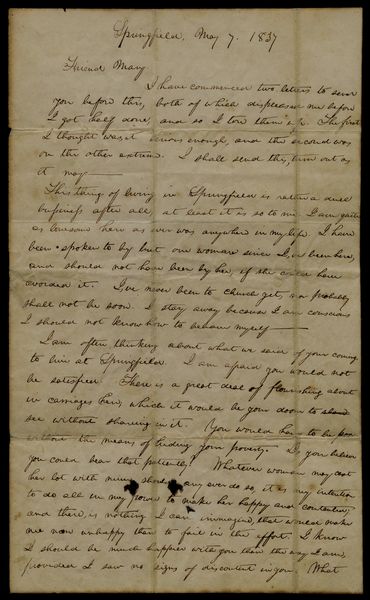 Springfield, May 7. 1837
Friend Mary
I have commenced two letters to send
you before this, both of which displeased me before
I got half done, and so I tore them up. The first
I thought was n't serious enough, and the second was
on the other extreme. I shall send this, turn out as
it may
This thing of living in Springfield is rather a dull
business after all, at least it is so to me. I am quite
as lonesome here as ever was anywhere in my life. I have
been spoken to by but one woman since I've been here,
and should not have been by her, if she could have
avoided it. I've never been to church yet, nor probably
shall not be soon. I stay away because I am conscious
I should not know how to behave myself
I am often thinking about what we said of your coming
to live at Springfield. I am afraid you would not
be satisfied. There is a great deal of flourishing about
in carriages here, which it would be your doom to
see without sharing in it. You would have to be poor
without the means of hiding your poverty. Do you believe
you could bear that patiently? Whatever woman may cast
her lot with mine, should any ever do so, it is my intention
to do all in my power to make her happy and contented;
and there is nothing I can immagine, that would make
me more unhappy than to fail in the effort. I know
I should be much happier with you than the way I am,
provided I saw no signs of discontent in you. What